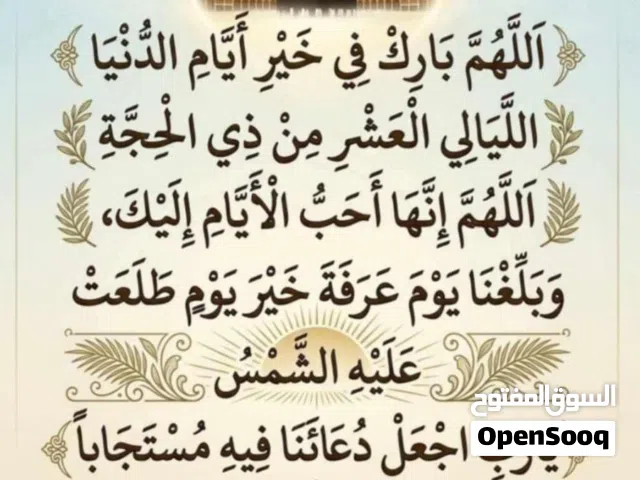 اَللَّهُمَّ بَارِكْ فِي خَيْرِ أَيَّامِ الدُّنْيَا
اللَّيَالِي الْعَشْرِ مِنْ ذِي الْحِجَّةِ
اَللَّهُمَّ إِنَّهَا أَحَبُّ الْأَيَّامِ إِلَيْكَ،
وَبَلِّغْنَا يَوْمَ عَرَفَةَ خَيْرَ يَوْمٍ طَلَعَتْ
عَلَيْهِ الشَّمْسُ
يَارَبِّ اجْعَلْ دُعَائَنَا فِيهِ مُسْتَجَاباً
السوق المفتوح
OpenSooq